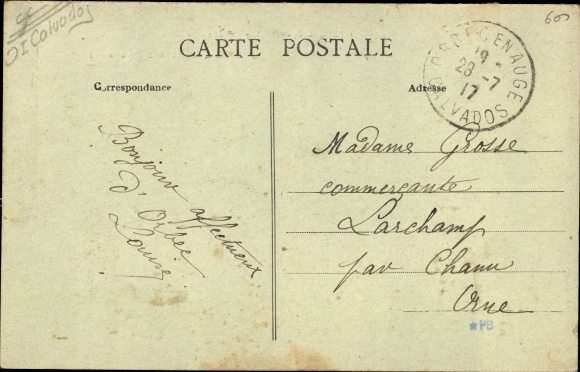 OI Calvados
600
CARTE POSTALE
Correspondance
Adresse
ORBEC EN AUGE
18 -
28 - 7
17
CALVADOS
Bonjour affectueux
d'Orbec
Louise
Madame Grosse
commerçante
Larchamp
par Chanu
Orne
*PB